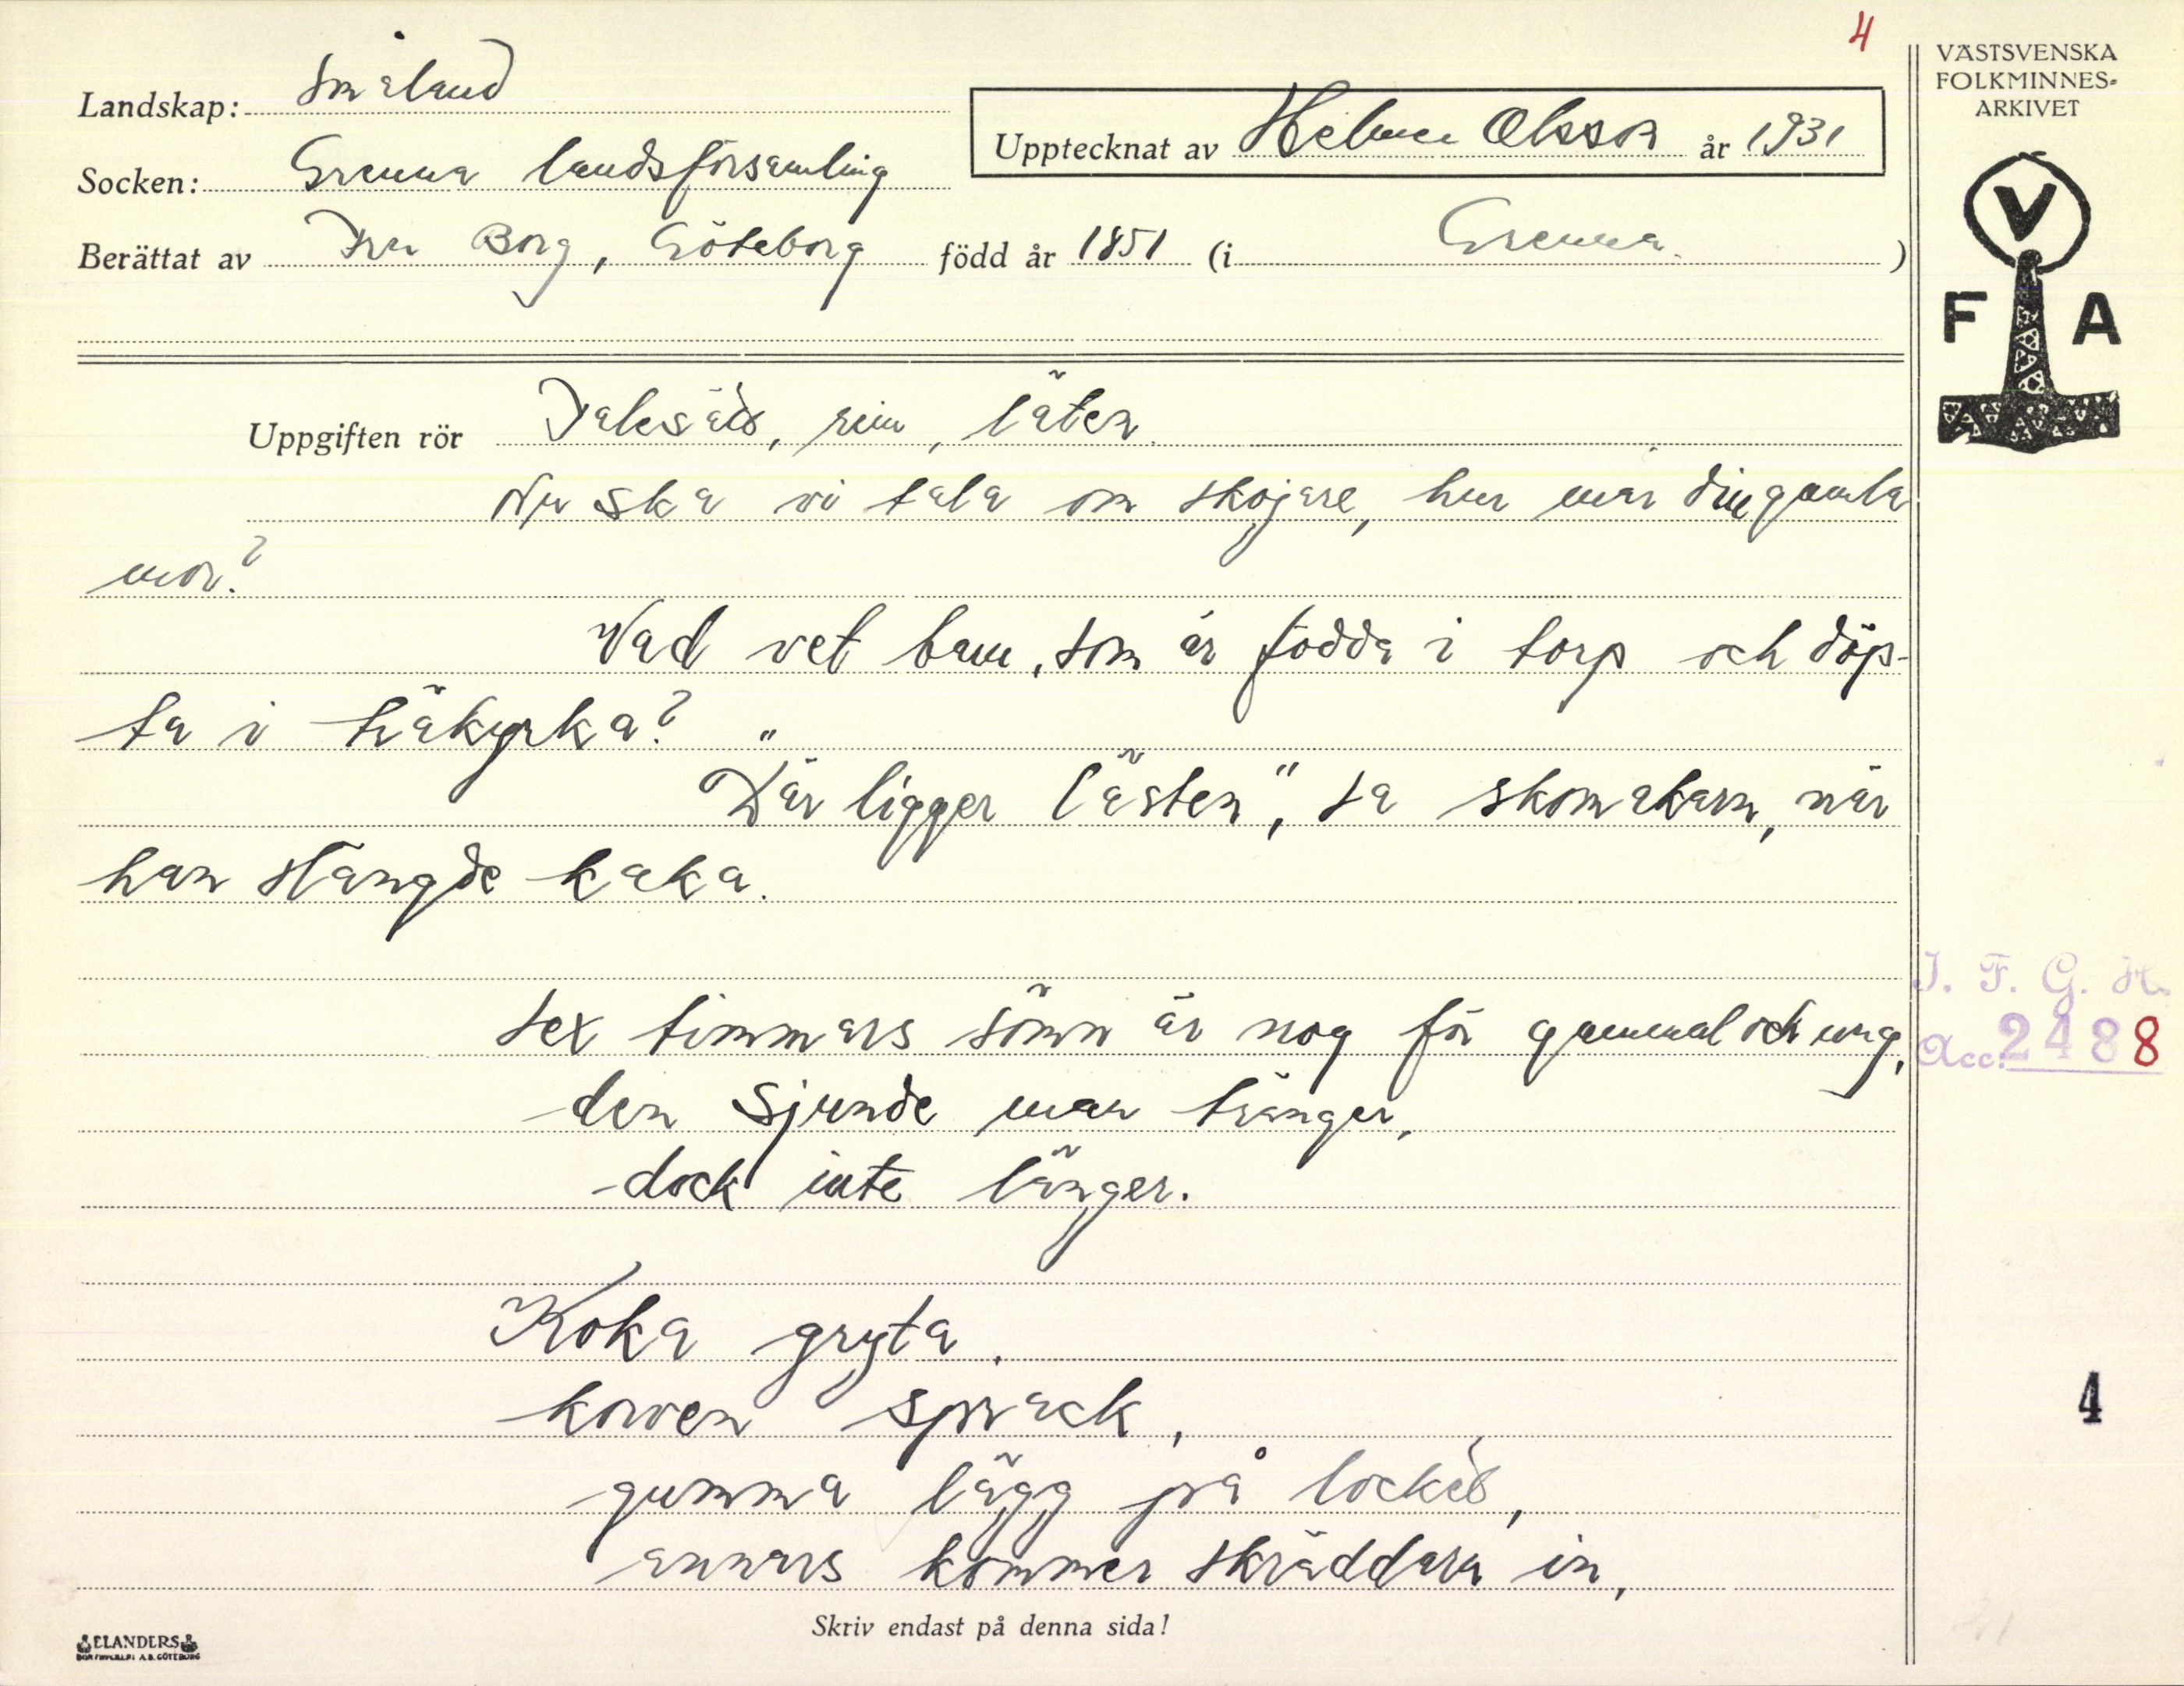 4
VÄSTSVENSKA
FOLKMINNES-
ARKIVET
Landskap: Småland
Upptecknat av Helmer Olsson år 1931
Socken: Grenna landsförsamling
Berättat av Fru Borg, Göteborg född år 1851 (i Grenna.)
V
F A
Uppgiften rör Talesätt, rim, låten.
Nu ska vi tala om skojare, hur mår din gamla
mor?
Vad vet barn, som är födda i torp och döp-
ta i träkyrka?
"Där ligger lästen", sa skomakarn, när
han slängde kaka.
I. F. G. H.
Sex timmars sömn är nog för gammal och ung,
Acc. 2488
den sjunde man tränger,
dock inte länger.
Koka gryta,
korven sprack,
4
gumma lägg på locket,
annars kommer skräddarn in,
Skriv endast på denna sida!
ELANDERS
BOKTRYCKERI A.B. GÖTEBORG